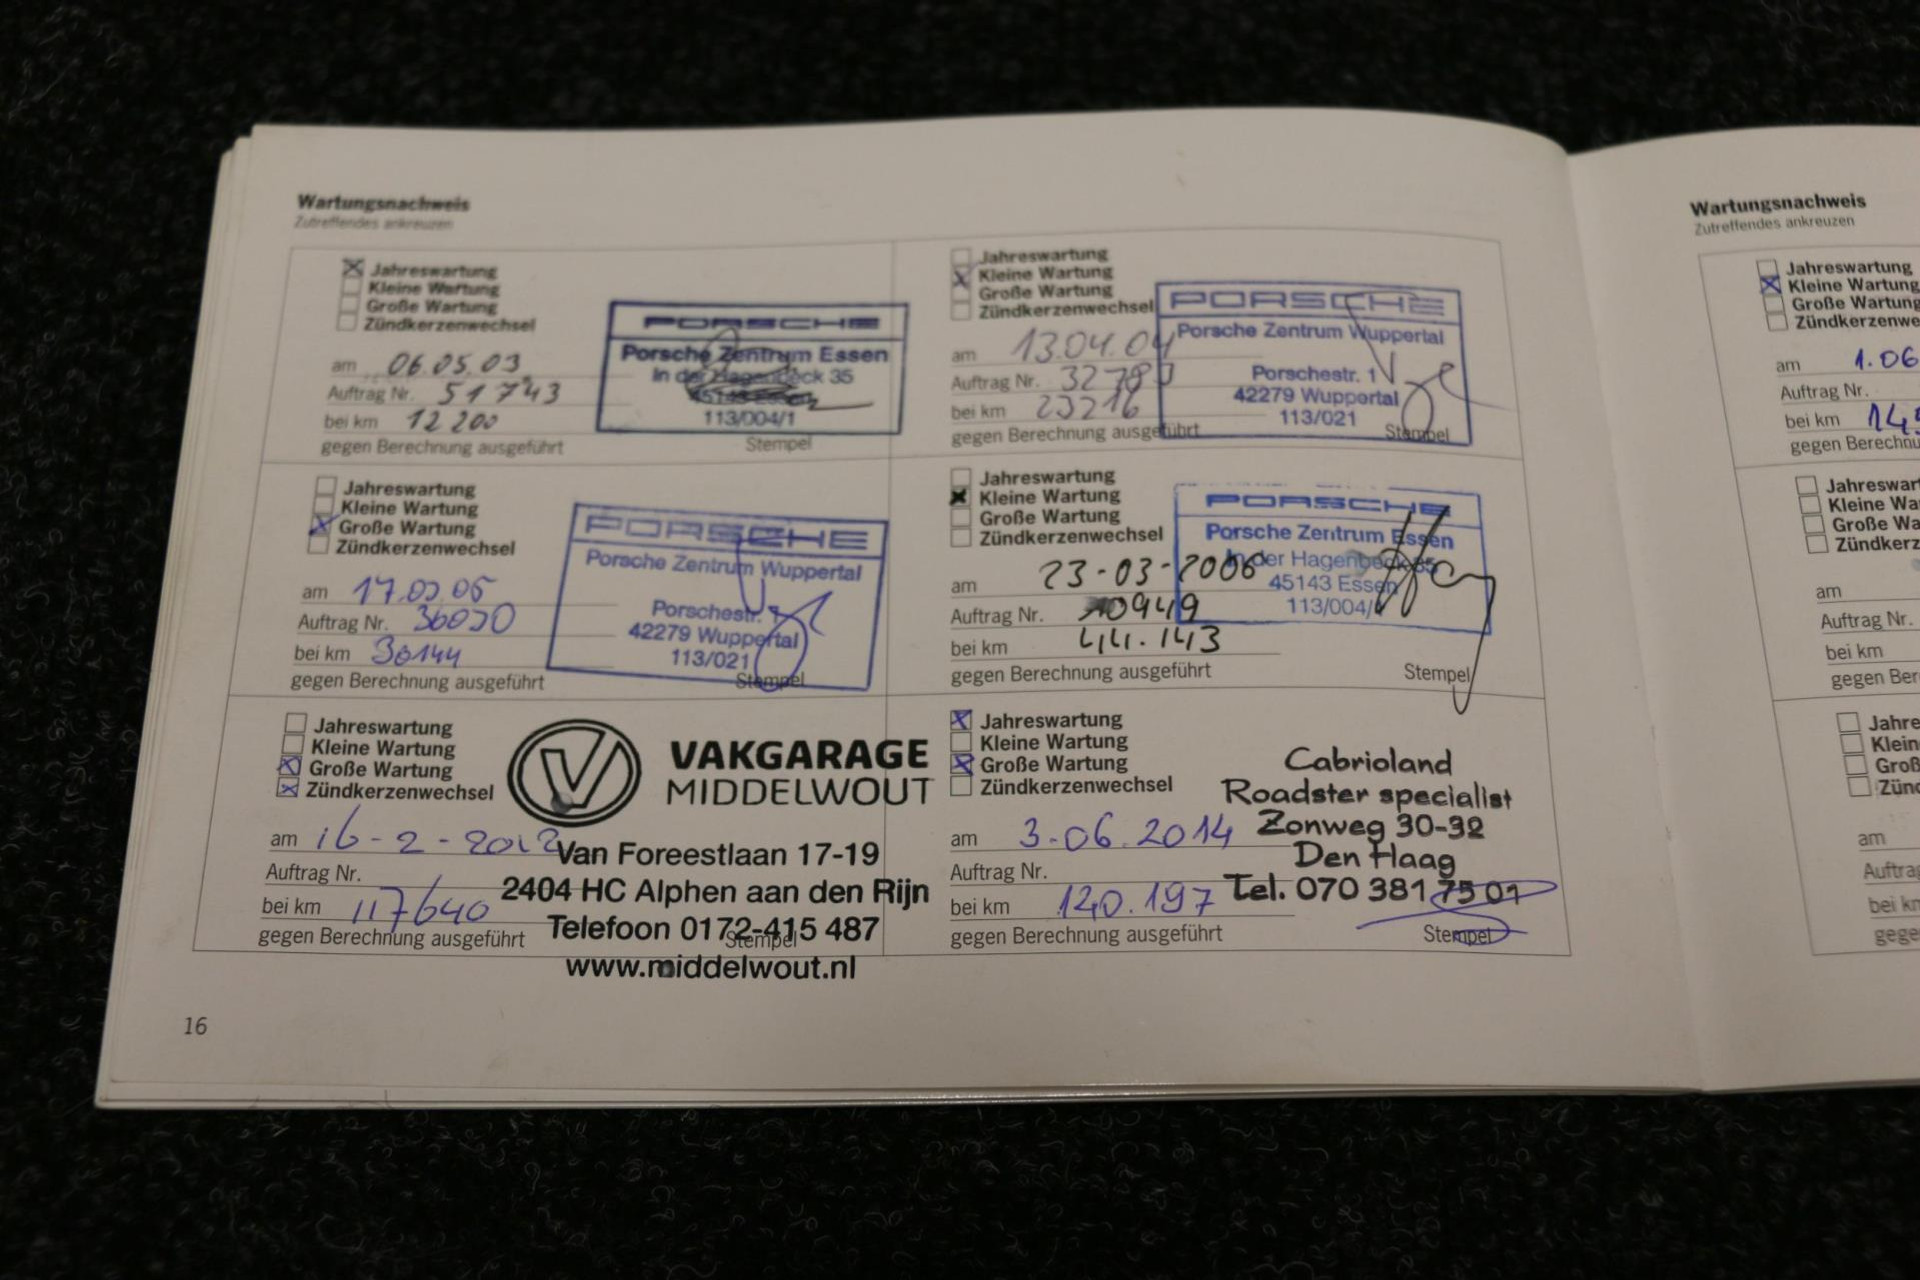 Wartungsnachweis
Zutreffendes ankreuzen
Jahreswartung
Kleine Wartung
Große Wartung
Zündkerzenwechsel
am 06.05.03
Auftrag Nr. 51743
bei km 12 200
gegen Berechnung ausgeführt
Stempel
PORSCHE
Porsche Zentrum Essen
In der Hagenbeck 35
45143 Essen
113/004/1
Jahreswartung
Kleine Wartung
Große Wartung
Zündkerzenwechsel
am 13.04.04
Auftrag Nr.
bei km 23216
gegen Berechnung ausgeführt
Stempel
PORSCHE
Porsche Zentrum Wuppertal
Porschestr. 1
42279 Wuppertal
113/021
Jahreswartung
Kleine Wartung
Große Wartung
Zündkerzenwechsel
am
Auftrag Nr.
bei km 30144
gegen Berechnung ausgeführt
Stempel
PORSCHE
Porsche Zentrum Wuppertal
Porschestr. 1
42279 Wuppertal
113/021
Jahreswartung
Kleine Wartung
Große Wartung
Zündkerzenwechsel
am 23-03-2006
Auftrag Nr.
bei km 44.143
gegen Berechnung ausgeführt
Stempel
PORSCHE
Porsche Zentrum Essen
In der Hagenbeck 35
45143 Essen
113/004/
Jahreswartung
Kleine Wartung
Große Wartung
Zündkerzenwechsel
am 16-2-2012
Auftrag Nr.
bei km 117640
gegen Berechnung ausgeführt
Stempel
VAKGARAGE
MIDDELWOUT
Van Foreestlaan 17-19
2404 HC Alphen aan den Rijn
Telefoon 0172-415 487
www.middelwout.nl
Jahreswartung
Kleine Wartung
Große Wartung
Zündkerzenwechsel
am 3-06.2014
Auftrag Nr.
bei km 120.197
gegen Berechnung ausgeführt
Stempel
Cabrioland
Roadster specialist
Zonweg 30-32
Den Haag
Tel. 070 381 75 01
16
Wartungsnachweis
Zutreffendes ankreuzen
Jahreswartung
Kleine Wartung
Große Wartung
Zündkerzenwe
am 1.06
Auftrag Nr.
bei km 145
gegen Berechnu
Jahreswar
Kleine Wa
Große Wa
Zündkerz
am
Auftrag Nr.
bei km
gegen Ber
Jahre
Klein
Groß
Zünd
am
Auftra
bei kn
gege